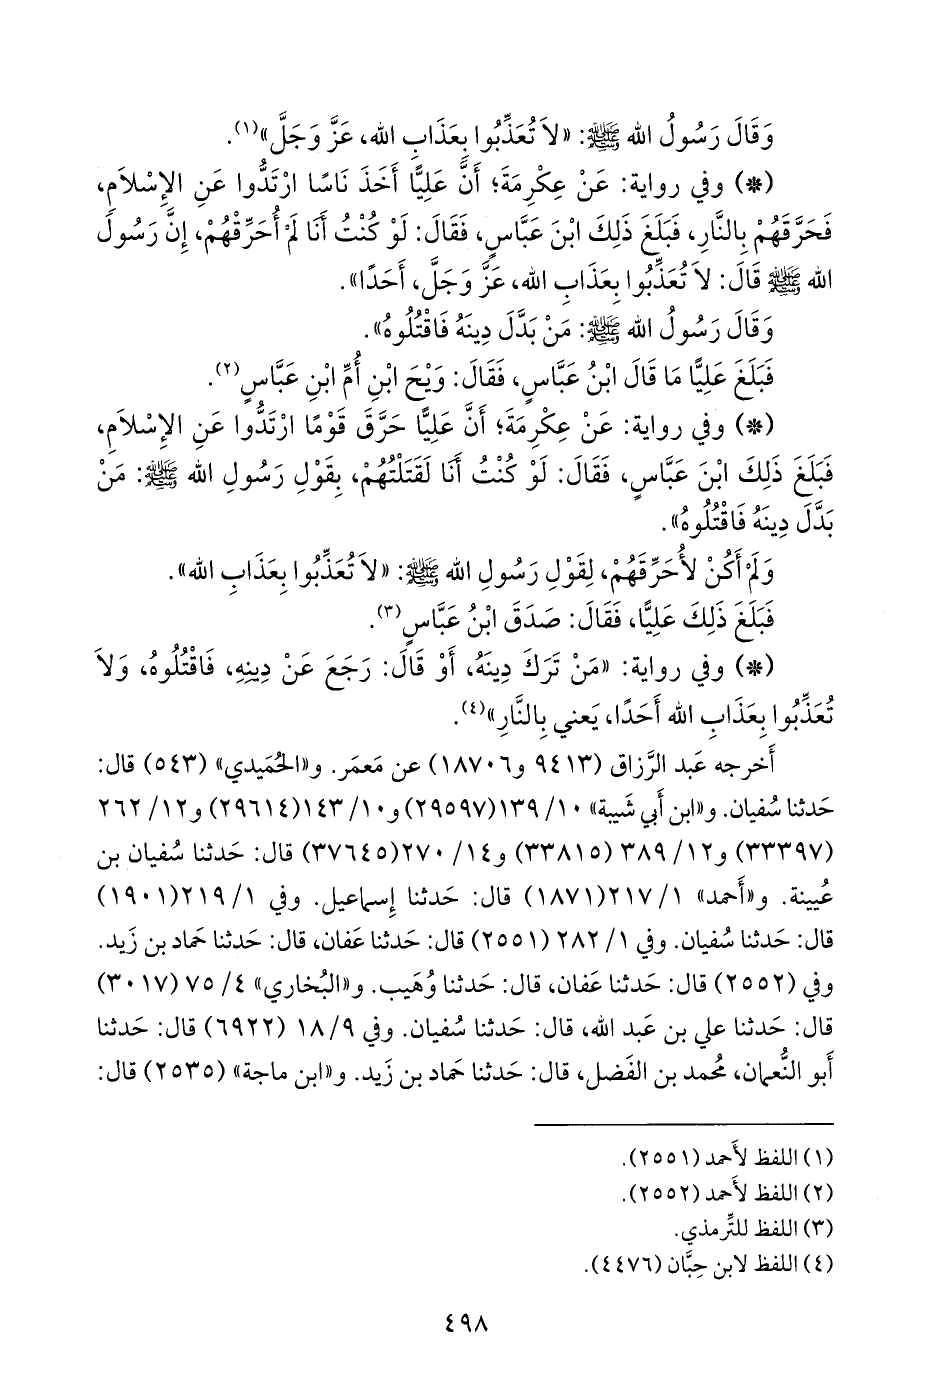 وَقَالَ رَسُولُ الله ﷺ: «لاَ تُعَذِّبُوا بِعَذَابِ الله، عَزَّ وَجَلَّ»(١).
(*) وفي رواية: عَنْ عِكْرِمَةَ؛ أَنَّ عَلِيًّا أَخَذَ نَاسًا ارْتَدُّوا عَنِ الإِسْلاَمِ،
فَحَرَّقَهُمْ بِالنَّارِ، فَبَلَغَ ذَلِكَ ابْنَ عَبَّاسٍ، فَقَالَ: لَوْ كُنْتُ أَنَا لَمْ أُحَرِّقْهُمْ، إِنَّ رَسُولَ
الله ﷺ قَالَ: لاَ تُعَذِّبُوا بِعَذَابِ الله، عَزَّ وَجَلَّ، أَحَدًا».
وَقَالَ رَسُولُ الله ﷺ: مَنْ بَدَّلَ دِينَهُ فَاقْتُلُوهُ».
فَبَلَغَ عَلِيًّا مَا قَالَ ابْنُ عَبَّاسٍ، فَقَالَ: وَيْحَ ابْنِ أُمِّ ابْنِ عَبَّاسٍ(٢).
(*) وفي رواية: عَنْ عِكْرِمَةَ؛ أَنَّ عَلِيًّا حَرَّقَ قَوْمًا ارْتَدُّوا عَنِ الإِسْلاَمِ،
فَبَلَغَ ذَلِكَ ابْنَ عَبَّاسٍ، فَقَالَ: لَوْ كُنْتُ أَنَا لَقَتَلْتُهُمْ، بِقَوْلِ رَسُولِ الله ﷺ: مَنْ
بَدَّلَ دِينَهُ فَاقْتُلُوهُ».
وَلَمْ أَكُنْ لأُحَرِّقَهُمْ، لِقَوْلِ رَسُولِ الله ﷺ: «لاَ تُعَذِّبُوا بِعَذَابِ الله».
فَبَلَغَ ذَلِكَ عَلِيًّا، فَقَالَ: صَدَقَ ابْنُ عَبَّاسٍ(٣).
(*) وفي رواية: «مَنْ تَرَكَ دِينَهُ، أَوْ قَالَ: رَجَعَ عَنْ دِينِهِ، فَاقْتُلُوهُ، وَلاَ
تُعَذِّبُوا بِعَذَابِ الله أَحَدًا، يَعني بِالنَّارِ»(٤).
أَخرجه عَبد الرَّزاق (٩٤١٣ و١٨٧٠٦) عن مَعمَر. و«الحُميدي» (٥٤٣) قال:
حَدثنا سُفيان. و«ابن أَبي شَيبة» ١٠/ ١٣٩(٢٩٥٩٧) و١٠/ ١٤٣(٢٩٦١٤) و١٢/ ٢٦٢
(٣٣٣٩٧) و١٢/ ٣٨٩ (٣٣٨١٥) و١٤/ ٢٧٠(٣٧٦٤٥) قال: حَدثنا سُفيان بن
عُيينة. و«أَحمد» ١/ ٢١٧(١٨٧١) قال: حَدثنا إِسماعيل. وفي ١/ ٢١٩(١٩٠١)
قال: حَدثنا سُفيان. وفي ١/ ٢٨٢ (٢٥٥١) قال: حَدثنا عَفان، قال: حَدثنا حَماد بن زَيد.
وفي (٢٥٥٢) قال: حَدثنا عَفان، قال: حَدثنا وُهَيب. و«البُخاري» ٤/ ٧٥ (٣٠١٧)
قال: حَدثنا علي بن عَبد الله، قال: حَدثنا سُفيان. وفي ٩/ ١٨ (٦٩٢٢) قال: حَدثنا
أَبو النُّعمان، مُحمد بن الفَضل، قال: حَدثنا حَماد بن زَيد. و«ابن ماجة» (٢٥٣٥) قال:
(١) اللفظ لأَحمد (٢٥٥١).
(٢) اللفظ لأَحمد (٢٥٥٢).
(٣) اللفظ للتِّرمذي.
(٤) اللفظ لابن حِبَّان (٤٤٧٦).
٤٩٨